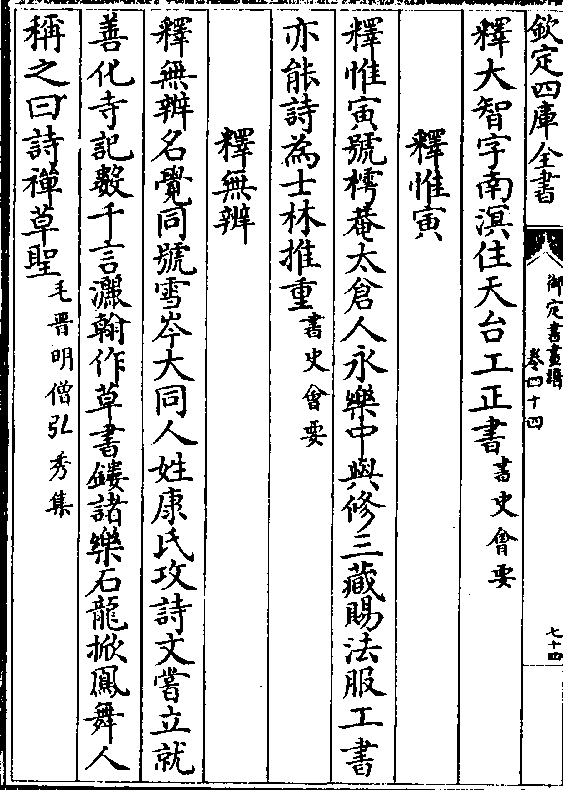 欽定四庫全書
御定書畫譜
卷四十四
七十四
釋大智字南溟住天台工正書書史會要
釋惟寅
釋惟寅號樗菴太倉人永樂中與修三藏賜法服工書
亦能詩為士林推重書史會要
釋無辨
釋無辨名覺同號雪岑大同人姓康氏攻詩文嘗立就
善化寺記數千言灑翰作草書鏤諸樂石龍掀鳳舞人
稱之曰詩禪草聖毛晉明僧弘秀集